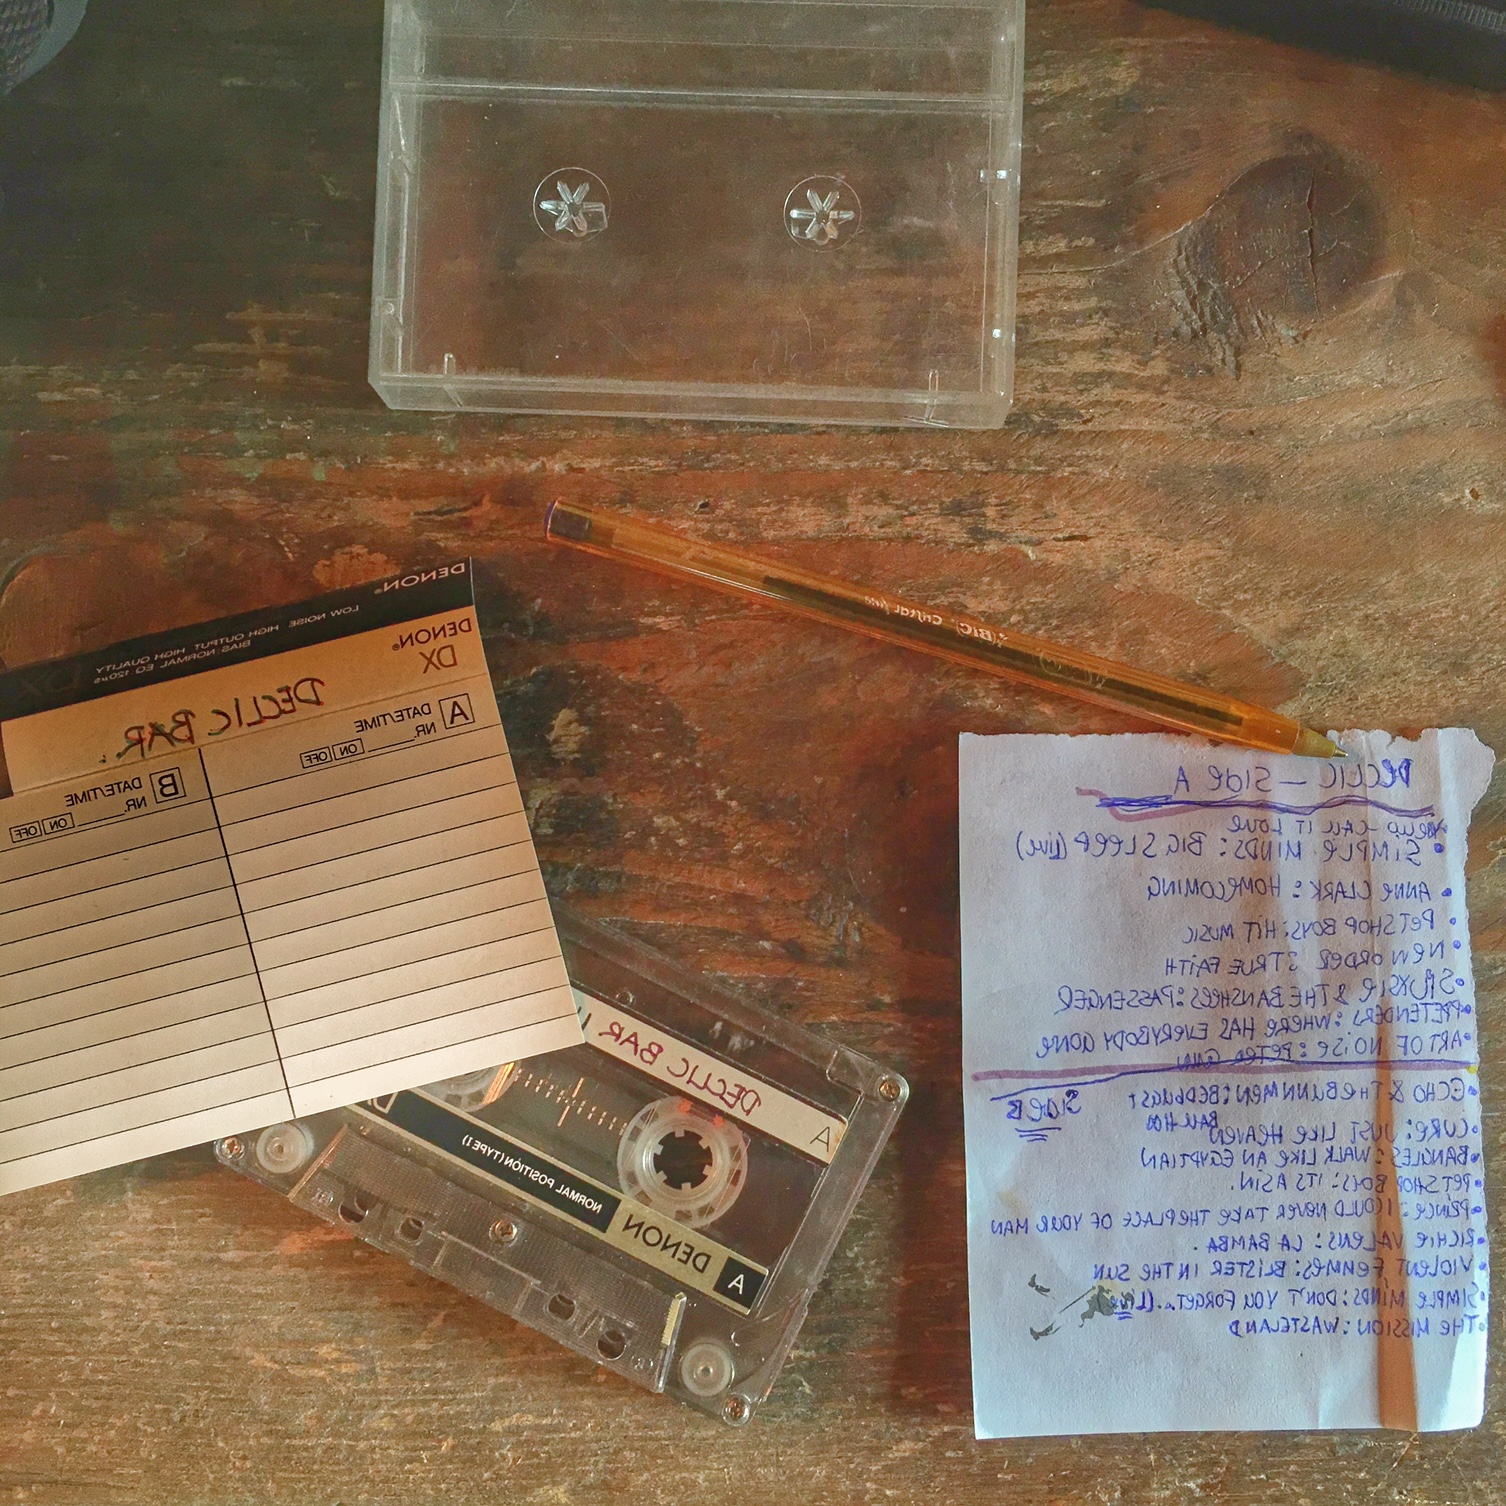 DENON®
LOW NOISE HIGH OUTPUT HIGH QUALITY
BIAS: NORMAL EQ: 120µs
DX
DENON®
DX
DECLIC BAR
A DATE/TIME
NR. ON OFF
B DATE/TIME
NR. ON OFF
BIC Cristal fine
A DECLIC BAR
NORMAL POSITION (TYPE I)
A DENON
DECLIC — SIDE A
YELLO - CALL IT LOVE
• SIMPLE MINDS: BIG SLEEP (Live)
• ANNE CLARK: HOMECOMING
• PETSHOP BOYS: HIT MUSIC
• NEW ORDER: TRUE FAITH
• SIOUXSIE & THE BANSHEES: PASSENGER
• PRETENDERS: WHERE HAS EVERYBODY GONE
• ART OF NOISE: PETER GUNN
SIDE B
• ECHO & THE BUNNYMEN: BEDBUGS +
BALLHOO
• CURE: JUST LIKE HEAVEN
• BANGLES: WALK LIKE AN EGYPTIAN
• PETSHOP BOYS: ITS A SIN.
• PRINCE: I COULD NEVER TAKE THE PLACE OF YOUR MAN
• RICHIE VALENS: LA BAMBA.
• VIOLENT FEMMES: BLISTER IN THE SUN
• SIMPLE MINDS: DON'T YOU FORGET... (Live)
• THE MISSION: WASTELAND